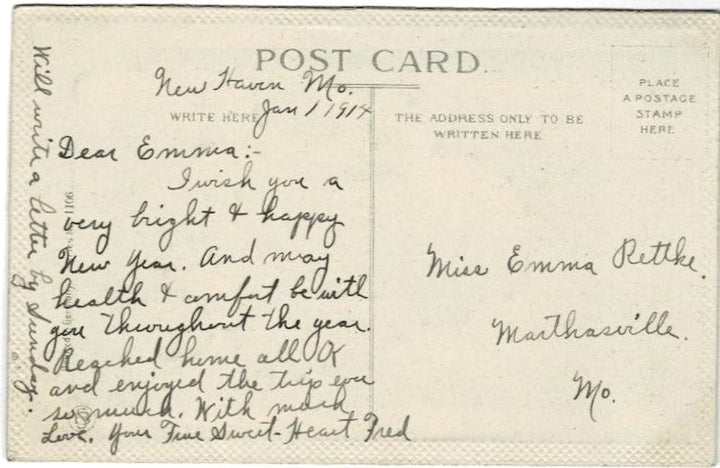 POST CARD.
New Haven Mo.
Jan 1 1914
WRITE HERE
Dear Emma:-
I wish you a
very bright & happy
New Year. And may
health & comfort be with
you throughout the year.
Reached home all OK
and enjoyed the trip ever
so much. With much
Love. Your True Sweet-Heart Fred
Will write a letter by Sunday.
THE ADDRESS ONLY TO BE
WRITTEN HERE
PLACE
A POSTAGE
STAMP
HERE
Miss Emma Rettke.
Marthasville.
Mo.